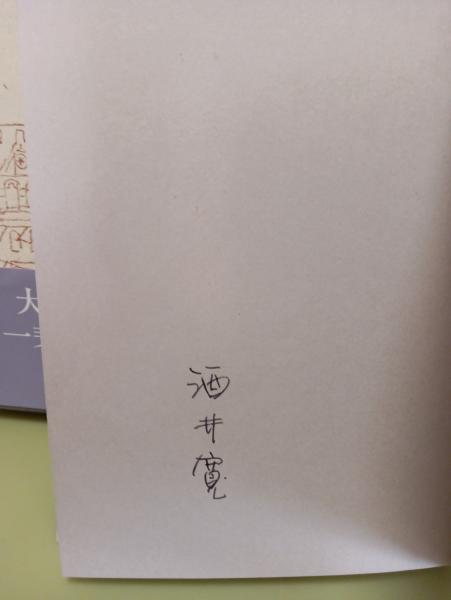 酒井寛
大
一